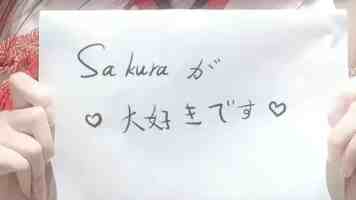 Sakuraが
♡大好きです♡